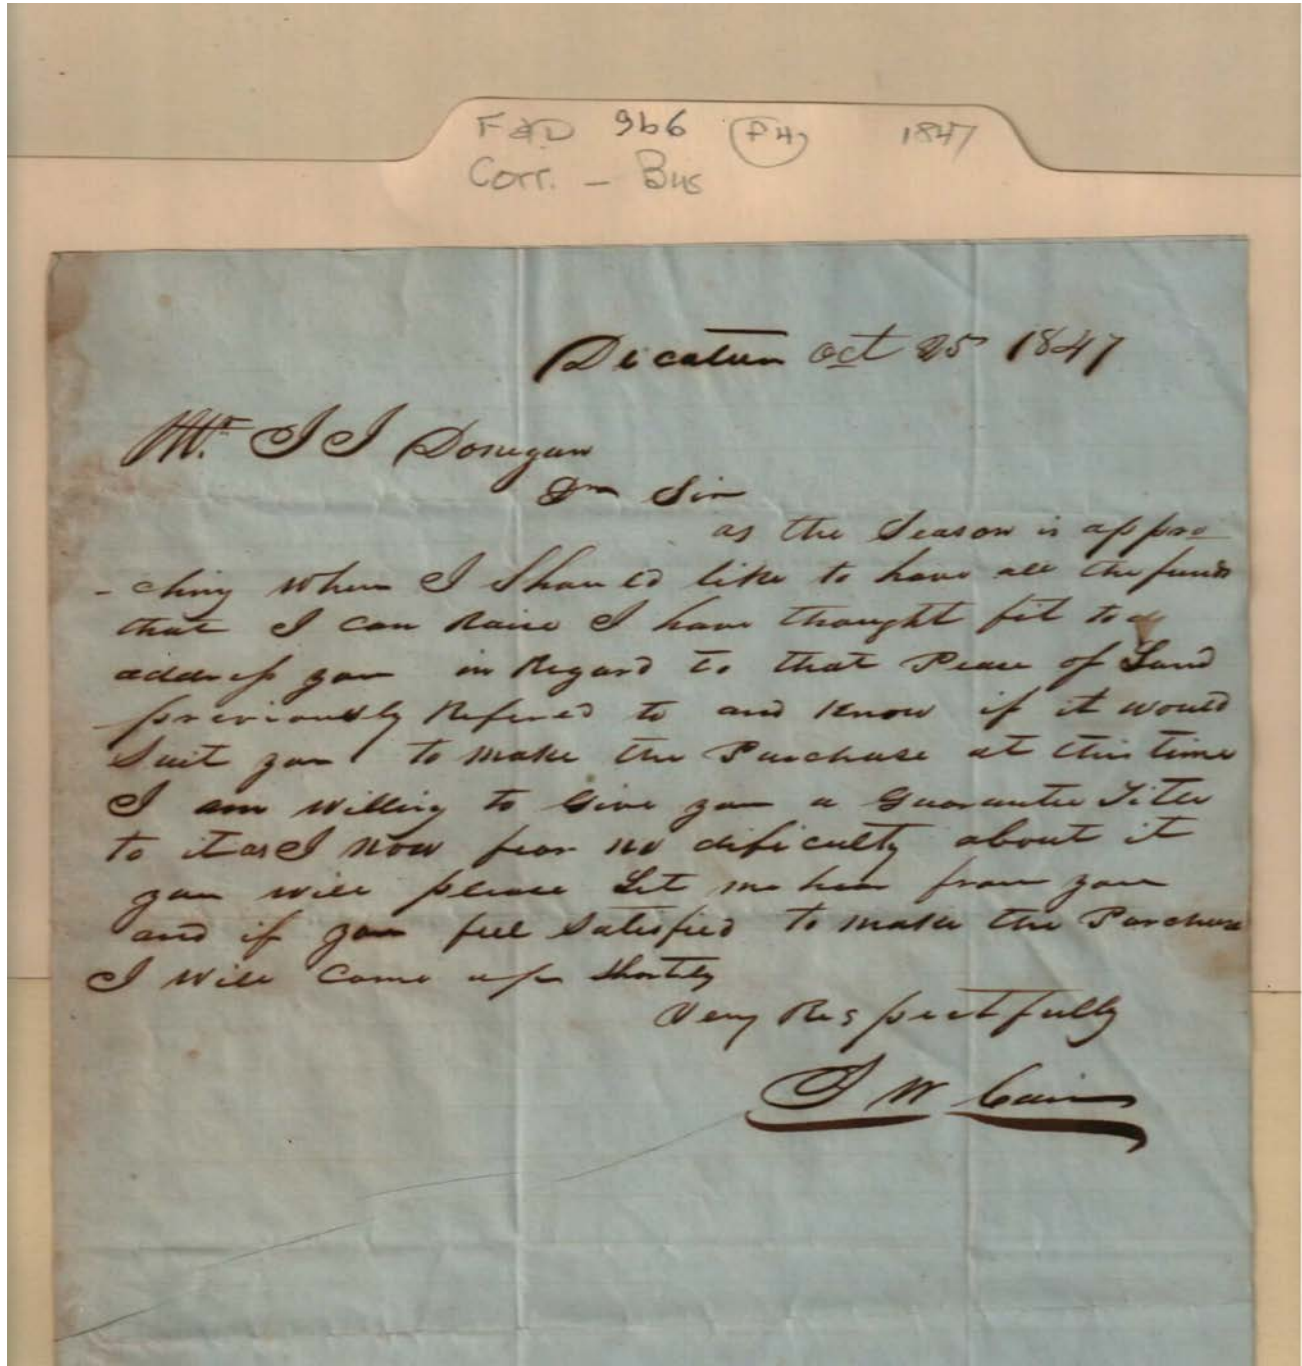 F&D 966 P4 1847
Corr. - Bus
Decatur Oct 25 1847
Mr. J J Donegan
Dr Sir
as the Season is appro
-ching when I Should like to have all the funds
that I can Raise I have thought fit to
address you in Regard to that Peace of Land
previously Refered to and Know if it would
Suit you to make the Purchase at this time
I am willing to Give you a Guarantee Title
to it as I now fear no dificulty about it
you will please Let me hear from you
and if you feel Satisfied to make the Purchase
I will Come up Shortly
Very Respectfully
J W Cain